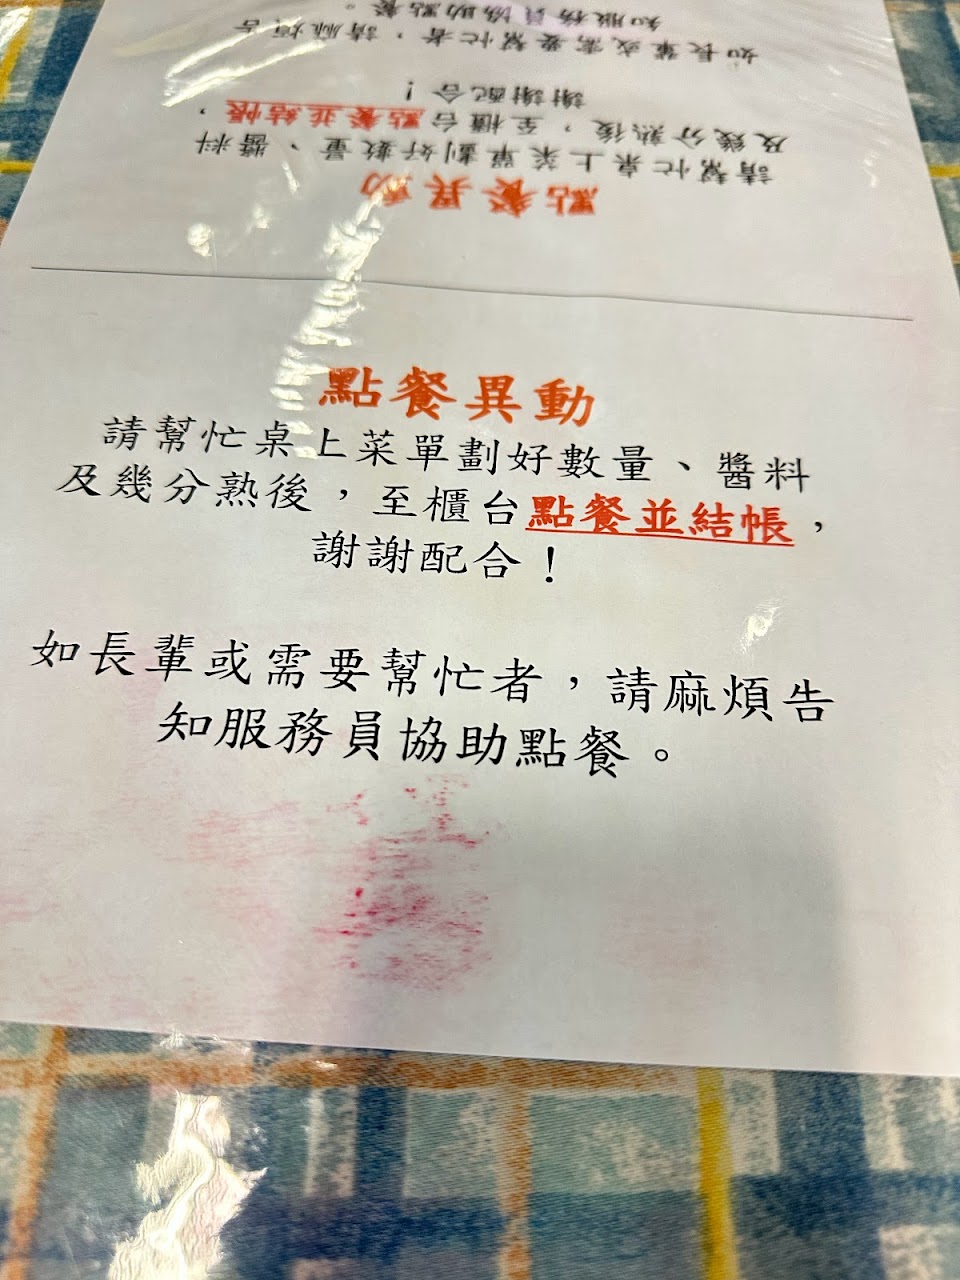 如長輩或需要幫忙者，請麻煩告
知服務員協助點餐。
點餐異動
請幫忙桌上菜單劃好數量、醬料
及幾分熟後，至櫃台點餐並結帳，
謝謝配合！
點餐異動
請幫忙桌上菜單劃好數量、醬料
及幾分熟後，至櫃台點餐並結帳，
謝謝配合！
如長輩或需要幫忙者，請麻煩告
知服務員協助點餐。